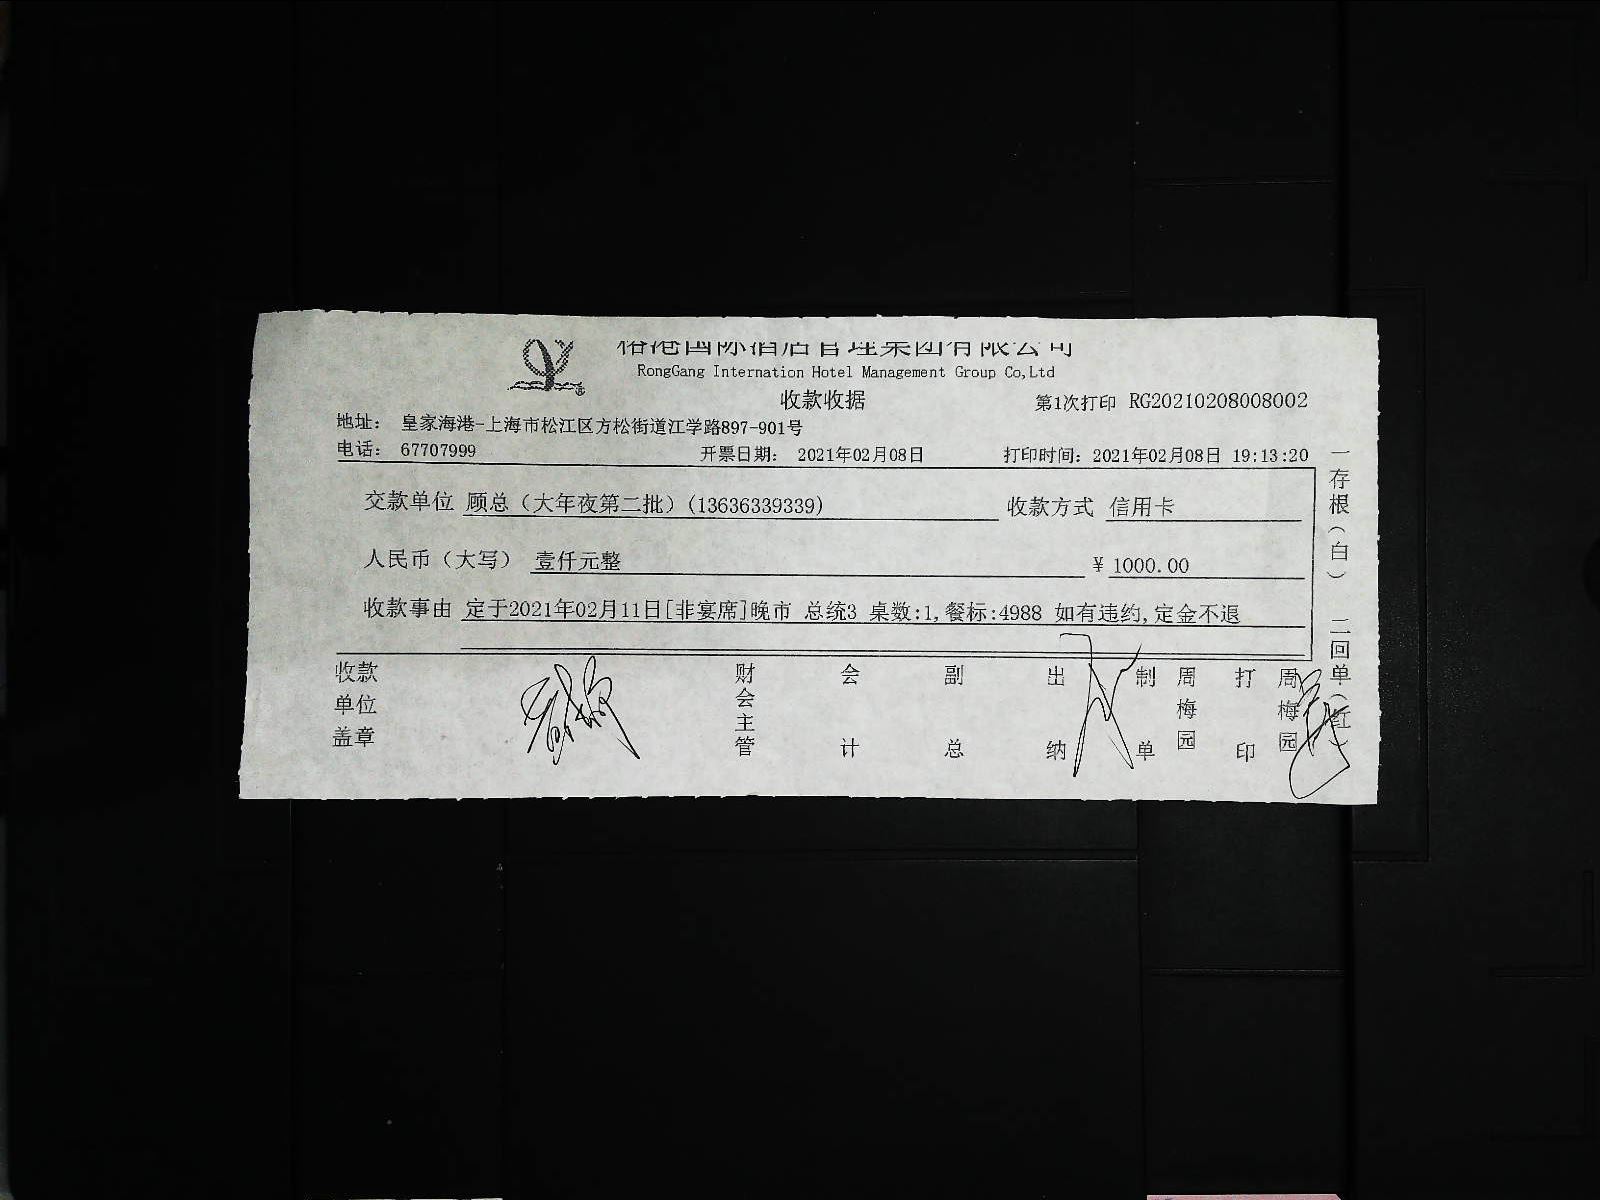 榕港国际酒店管理集团有限公司
RongGang Internation Hotel Management Group Co,Ltd
收款收据
第1次打印 RG20210208008002
地址： 皇家海港-上海市松江区方松街道江学路897-901号
电话： 67707999 开票日期： 2021年02月08日 打印时间：2021年02月08日 19:13:20
交款单位 顾总（大年夜第二批）(13636339339) 收款方式 信用卡
人民币（大写） 壹仟元整 ￥1000.00
收款事由 定于2021年02月11日[非宴席]晚市 总统3 桌数:1,餐标:4988 如有违约,定金不退
收款单位盖章 财会主管 会计 副总 出纳 制单 周梅园 打印 周梅园
一存根（白） 二回单（红）